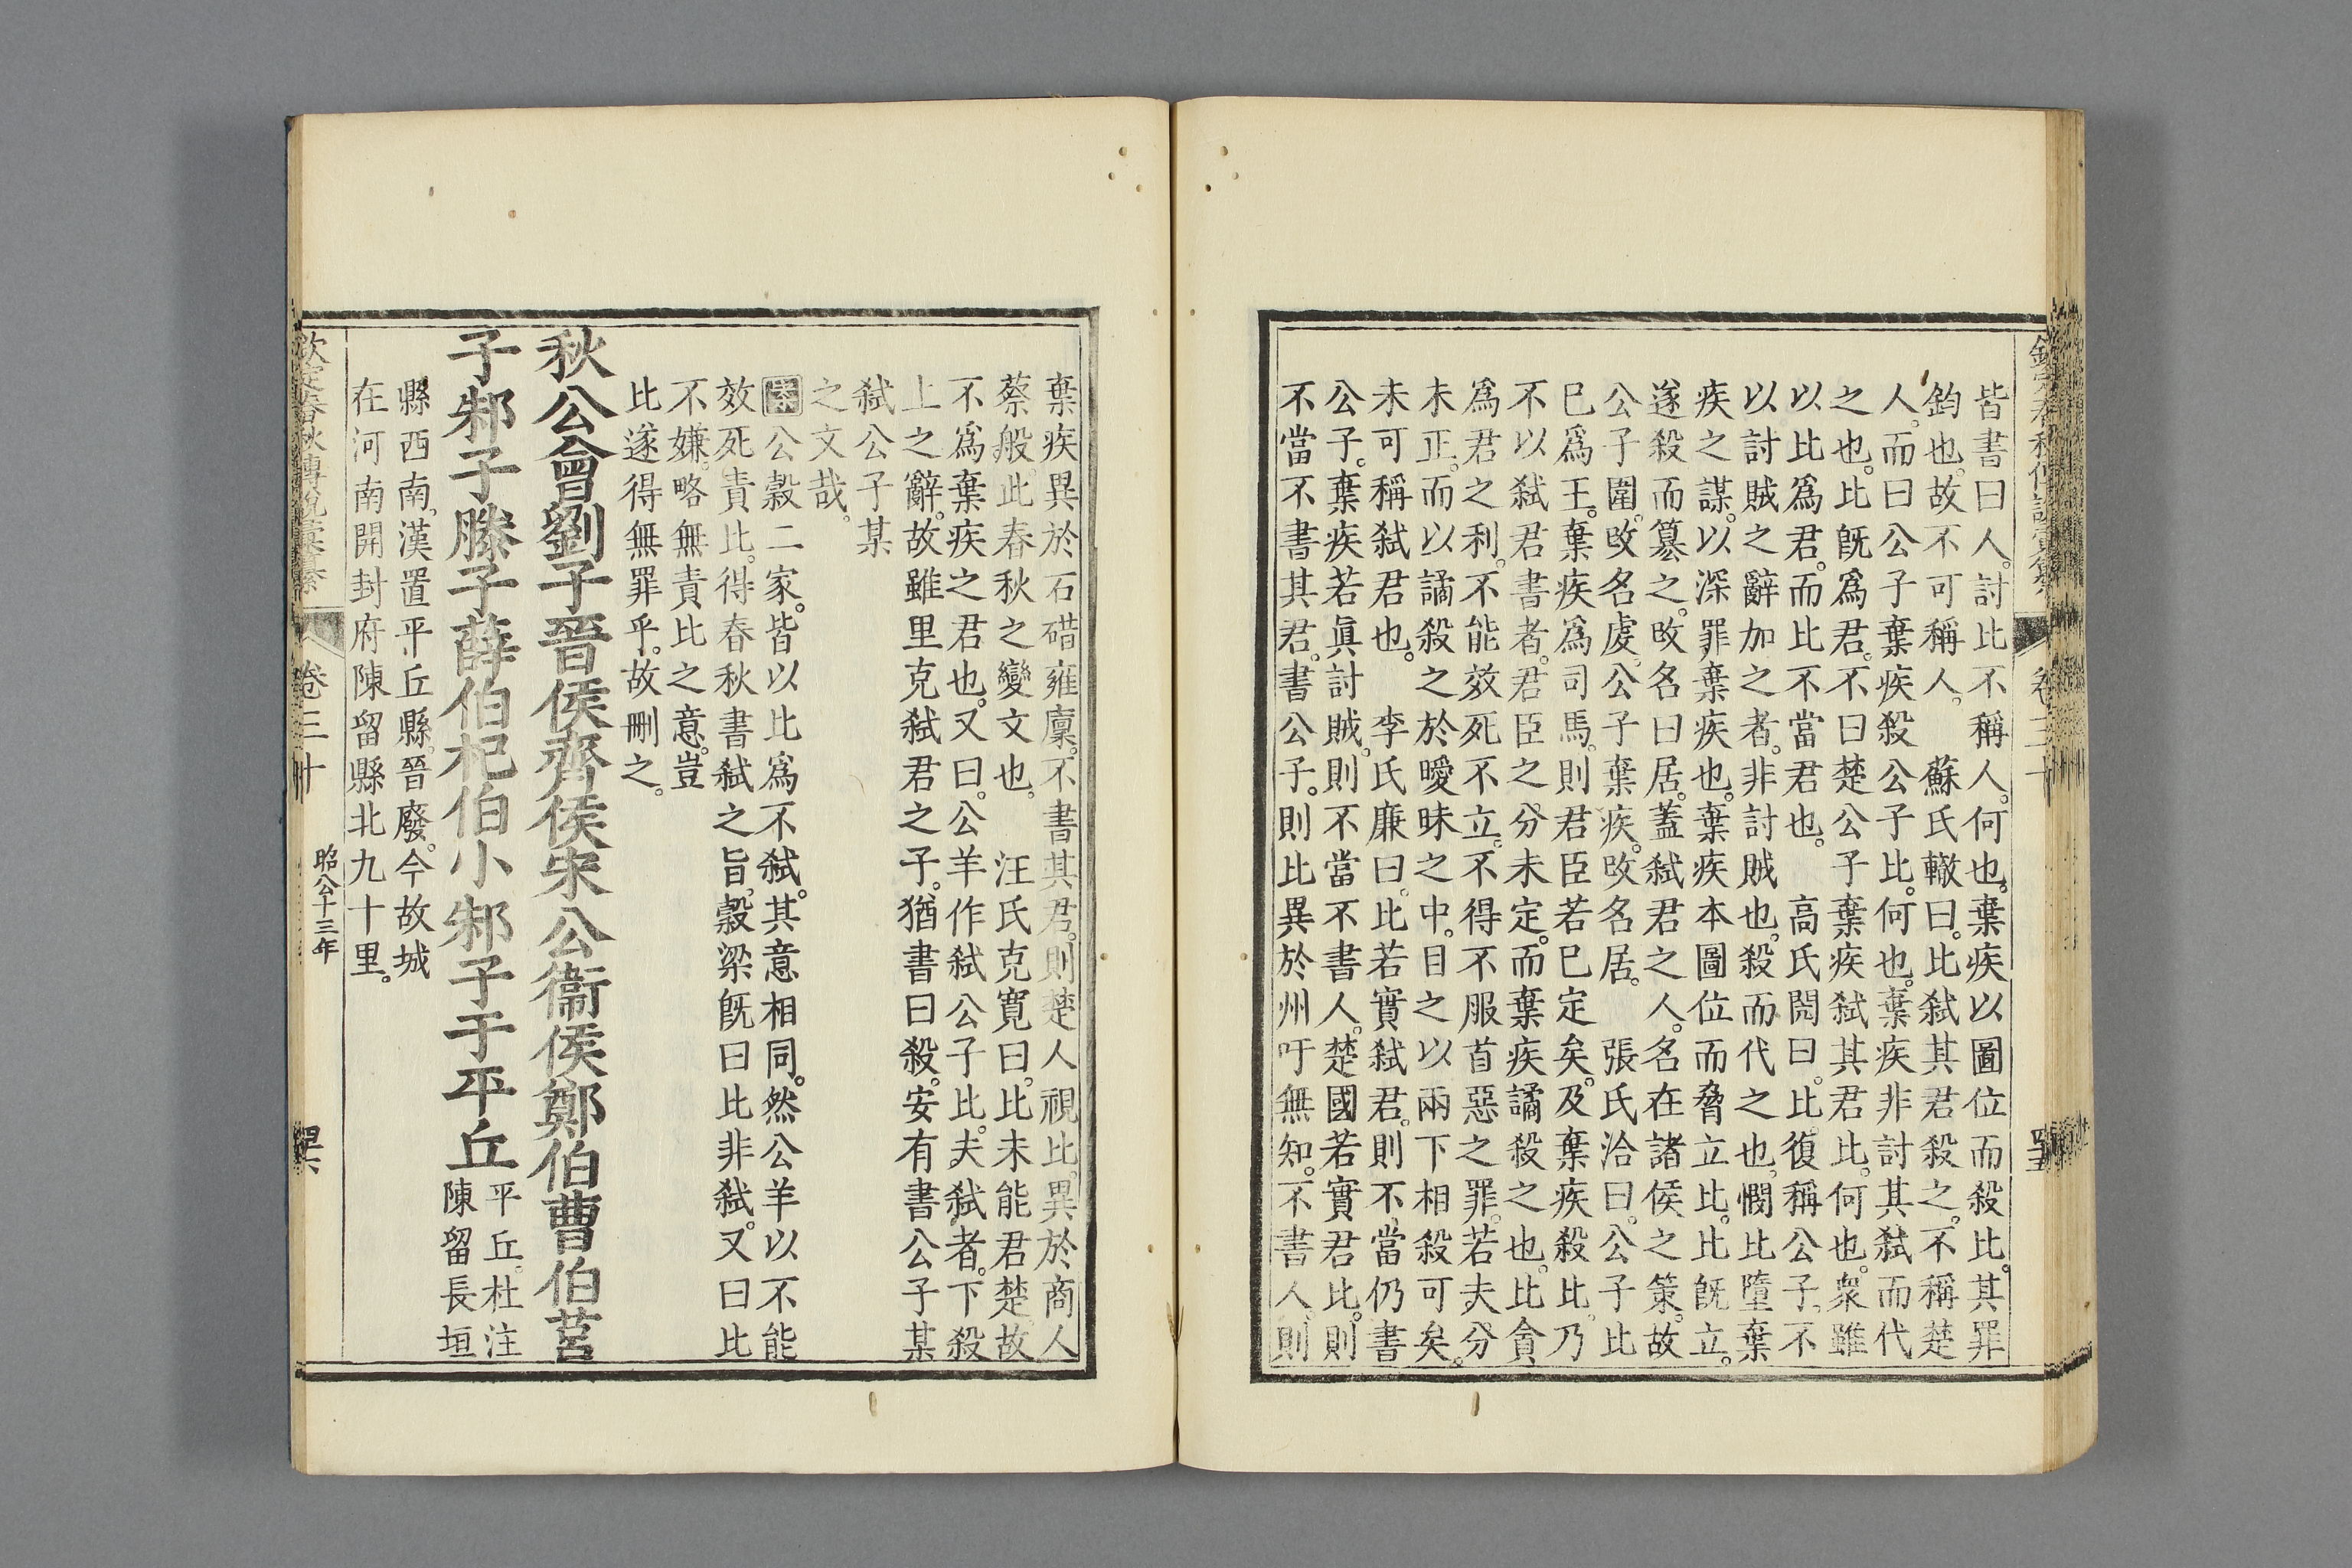 皆書曰人。討比不稱人。何也。棄疾以圖位而殺比。其罪
鈞也。故不可稱人。　蘇氏轍曰。比弑其君殺之。不稱楚
人。而曰公子棄疾殺公子比。何也。棄疾非討其弑而代
之也。比旣爲君。不曰楚公子棄疾弑其君比。何也。衆雖
以比爲君。而比不當君也。　高氏閌曰。比復稱公子。不
以討賊之辭加之者。非討賊也。殺而代之也。憫比墮棄
疾之謀。以深罪棄疾也。棄疾本圖位而脅立比。比旣立。
遂殺而簒之。攺名曰居。蓋弑君之人。名在諸侯之策。故
公子圍。攺名虔。公子棄疾。攺名居。　張氏洽曰。公子比
巳爲王。棄疾爲司馬。則君臣若巳定矣。及棄疾殺比。乃
不以弑君書者。君臣之分未定。而棄疾譎殺之也。比貪
爲君之利。不能效死不立。不得不服首惡之罪。若夫分
未正。而以譎殺之於曖昧之中。目之以兩下相殺可矣。
未可稱弑君也。　李氏廉曰。比若實弑君。則不當仍書
公子。棄疾若眞討賊。則不當不書人。楚國若實君比。則
不當不書其君。書公子。則比異於州吁無知。不書人。則
欽定春秋傳說彙纂
卷三十
棄疾異於石碏雍廩。不書其君。則楚人視比。異於商人
蔡般。此春秋之變文也。　汪氏克寛曰。比未能君楚。故
不爲棄疾之君也。又曰。公羊作弑公子比。夫弑者。下殺
上之辭。故雖里克弑君之子。猶書曰殺。安有書公子某
弑公子某
之文哉。
案公穀二家。皆以比爲不弑。其意相同。然公羊以不能
效死責比。得春秋書弑之旨。穀梁旣曰比非弑。又曰比
不嫌。略無責比之意。豈
比遂得無罪乎。故刪之。
秋公會劉子晉侯齊侯宋公衞侯鄭伯曹伯莒
子邾子滕子薛伯杞伯小邾子于平丘平丘。杜注
陳留長垣
縣西南。漢置平丘縣。晉廢。今故城
在河南開封府陳留縣北九十里。
欽定春秋傳說彙纂
卷三十
昭公十三年